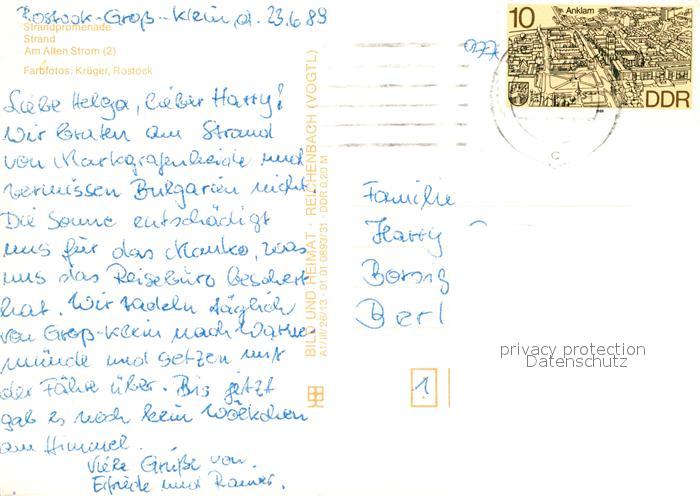 Rostock-Groß-Klein, d. 23.6.89
Strandpromenade
Strand
Am Alten Strom (2)
Farbfotos: Krüger, Rostock
Liebe Helga, lieber Harry!
Wir braten am Strand
von Markgrafenheide und
vermissen Bulgarien nicht.
Die Sonne entschädigt
uns für das Manko, was
uns das Reisebüro beschert
hat. Wir radeln täglich
von Groß-Klein nach Warne-
münde und setzen mit
der Fähre über. Bis jetzt
gab es noch kein Wölkchen
am Himmel.
Viele Grüße von
Elfriede und Rainer.
BILD UND HEIMAT · REICHENBACH (VOGTL)
A1/III/26/13 · 01 01 0893/31 DDR 0,20 M
10
Anklam
DDR
Familie
Harry
Borsig
Berl
1
privacy protection
Datenschutz